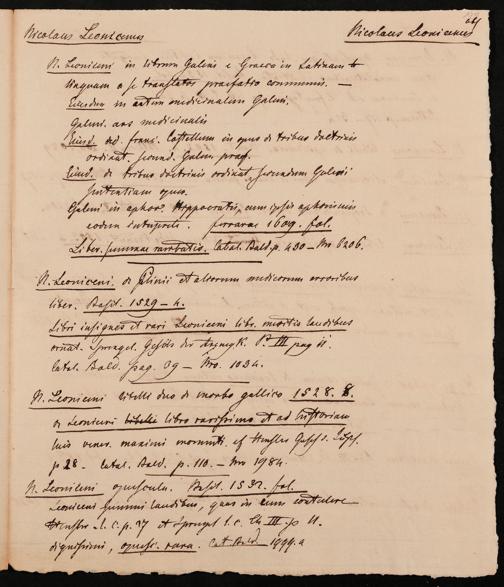 Nicolaus Leonicenus
Nicolaus Leonicenus
N. Leoniceni in librum Galeni e Graeca in Latinam
linguam a se translatos praefatio communis. —
Ejusdem in artem medicinalem Galeni.
Galeni ars medicinalis
Ejusd. ad franc. Castellum in opus de tribus doctrinis
ordinat. secund. Galen. praef.
Ejusd. de tribus doctrinis ordinat. secundum Galeni
sententiam opus.
Galeni in aphor. Hippocratis, cum ipsis aphorismis
eodem interprete. ferrarae 1609. fol.
Liber summae raritatis. Catal. Bald. p. 430 — Nro 6206.
N. Leoniceni, de Plinii et aliorum medicorum erroribus
liber. Basil. 1529 — 4.
Libri insignes et rari Leoniceni libr. meritis laudibus
ornat. Sprengel. Gesch. der Arzneyk. P. III pag 11.
Catal. Bald. pag. 39 — Nro. 1034.
N. Leoniceni libelli duo de morbo gallico 1528. 8.
de Leoniceni libello libro rarissimo et ad historiam
luis vener. maximi momenti. cf Hensler Gesch. d. Lustf.
p 28. Catal. Bald. p. 110. — Nro 1984.
N. Leoniceni opuscula. Basil. 1532. fol.
Leoniceni summis laudibus, quas in eum contulere
Hensler l. c. p. 37 et Sprengel l. c. Th. III. p 11.
dignissimi, opusc. rara. Cat Bald 1999.a